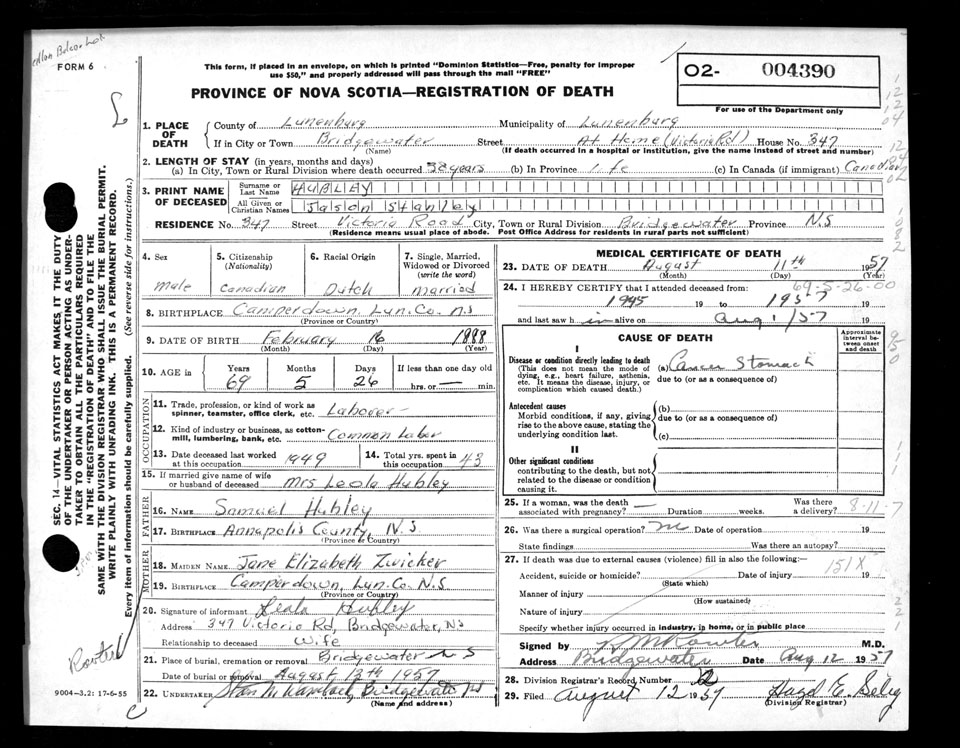 FORM 6
This form, if placed in an envelope, on which is printed "Dominion Statistics—Free, penalty for improper
use $50," and properly addressed will pass through the mail "FREE"
PROVINCE OF NOVA SCOTIA—REGISTRATION OF DEATH
O2- 004390
For use of the Department only
1. PLACE OF DEATH County of Lunenburg Municipality of Lunenburg
If in City or Town Bridgewater Street At Home (Victoria Rd) House No. 347
(Name) (If death occurred in a hospital or institution, give the name instead of street and number)
2. LENGTH OF STAY (in years, months and days)
(a) In City, Town or Rural Division where death occurred 32 years (b) In Province life (c) In Canada (if immigrant) Canadian
3. PRINT NAME OF DECEASED Surname or Last Name HUBLEY
All Given or Christian Names Jason Stanley
RESIDENCE No. 347 Street Victoria Road City, Town or Rural Division Bridgewater Province N.S
(Residence means usual place of abode. Post Office Address for residents in rural parts not sufficient)
4. Sex 5. Citizenship (Nationality) 6. Racial Origin 7. Single, Married, Widowed or Divorced (write the word)
Male Canadian Dutch Married
8. BIRTHPLACE Camperdown, Lun. Co. N.S
(Province or Country)
9. DATE OF BIRTH February 16 1888
(Month) (Day) (Year)
10. AGE in Years Months Days If less than one day old
69 5 26 hrs. or — min.
OCCUPATION
11. Trade, profession, or kind of work as spinner, teamster, office clerk, etc. Laborer
12. Kind of industry or business, as cotton-mill, lumbering, bank, etc. Common Labor
13. Date deceased last worked at this occupation 1949 14. Total yrs. spent in this occupation 43
15. If married give name of wife or husband of deceased Mrs Leola Hubley
FATHER
16. NAME Samuel Hubley
17. BIRTHPLACE Annapolis County, N.S
(Province or Country)
MOTHER
18. MAIDEN NAME Jane Elizabeth Zwicker
19. BIRTHPLACE Camperdown, Lun. Co. N.S
(Province or Country)
20. Signature of informant Leola Hubley
Address 347 Victoria Rd, Bridgewater, NS
Relationship to deceased Wife
21. Place of burial, cremation or removal Bridgewater N S
Date of burial or removal August 13th 1957
22. UNDERTAKER Bridgewater NS
(Name and address)
9004-3.2: 17-6-55
MEDICAL CERTIFICATE OF DEATH
23. DATE OF DEATH August 11th 1957
(Month) (Day) (Year)
69-5-26-00
24. I HEREBY CERTIFY that I attended deceased from:
1945 19 to 1957 19
and last saw him alive on Aug 1/57 19
CAUSE OF DEATH
Approximate interval between onset and death
I
Disease or condition directly leading to death
(This does not mean the mode of dying, e.g., heart failure, asthenia, etc. It means the disease, injury, or complication which caused death.)
(a) Cancer Stomach
due to (or as a consequence of)
Antecedent causes
Morbid conditions, if any, giving rise to the above cause, stating the underlying condition last.
(b)
due to (or as a consequence of)
(c)
II
Other significant conditions
contributing to the death, but not related to the disease or condition causing it.
25. If a woman, was the death associated with pregnancy? — Duration weeks. Was there a delivery?
8-11-7
26. Was there a surgical operation? no Date of operation 19
State findings Was there an autopsy?
27. If death was due to external causes (violence) fill in also the following:—
151X
Accident, suicide or homicide? Date of injury 19
(State which)
Manner of injury
(How sustained)
Nature of injury
Specify whether injury occurred in industry, in home, or in public place
Signed by M.D.
Address Bridgewater Date Aug 12 1957
28. Division Registrar's Record Number
29. Filed August 12 1957 E.
(Division Registrar)
SEC. 14—VITAL STATISTICS ACT MAKES IT THE DUTY
OF THE UNDERTAKER OR PERSON ACTING AS UNDER-
TAKER TO OBTAIN ALL THE PARTICULARS REQUIRED
IN THE "REGISTRATION OF DEATH" AND TO FILE THE
SAME WITH THE DIVISION REGISTRAR WHO SHALL ISSUE THE BURIAL PERMIT.
WRITE PLAINLY WITH UNFADING INK. THIS IS A PERMANENT RECORD.
Every item of information should be carefully supplied. (See reverse side for instructions.)